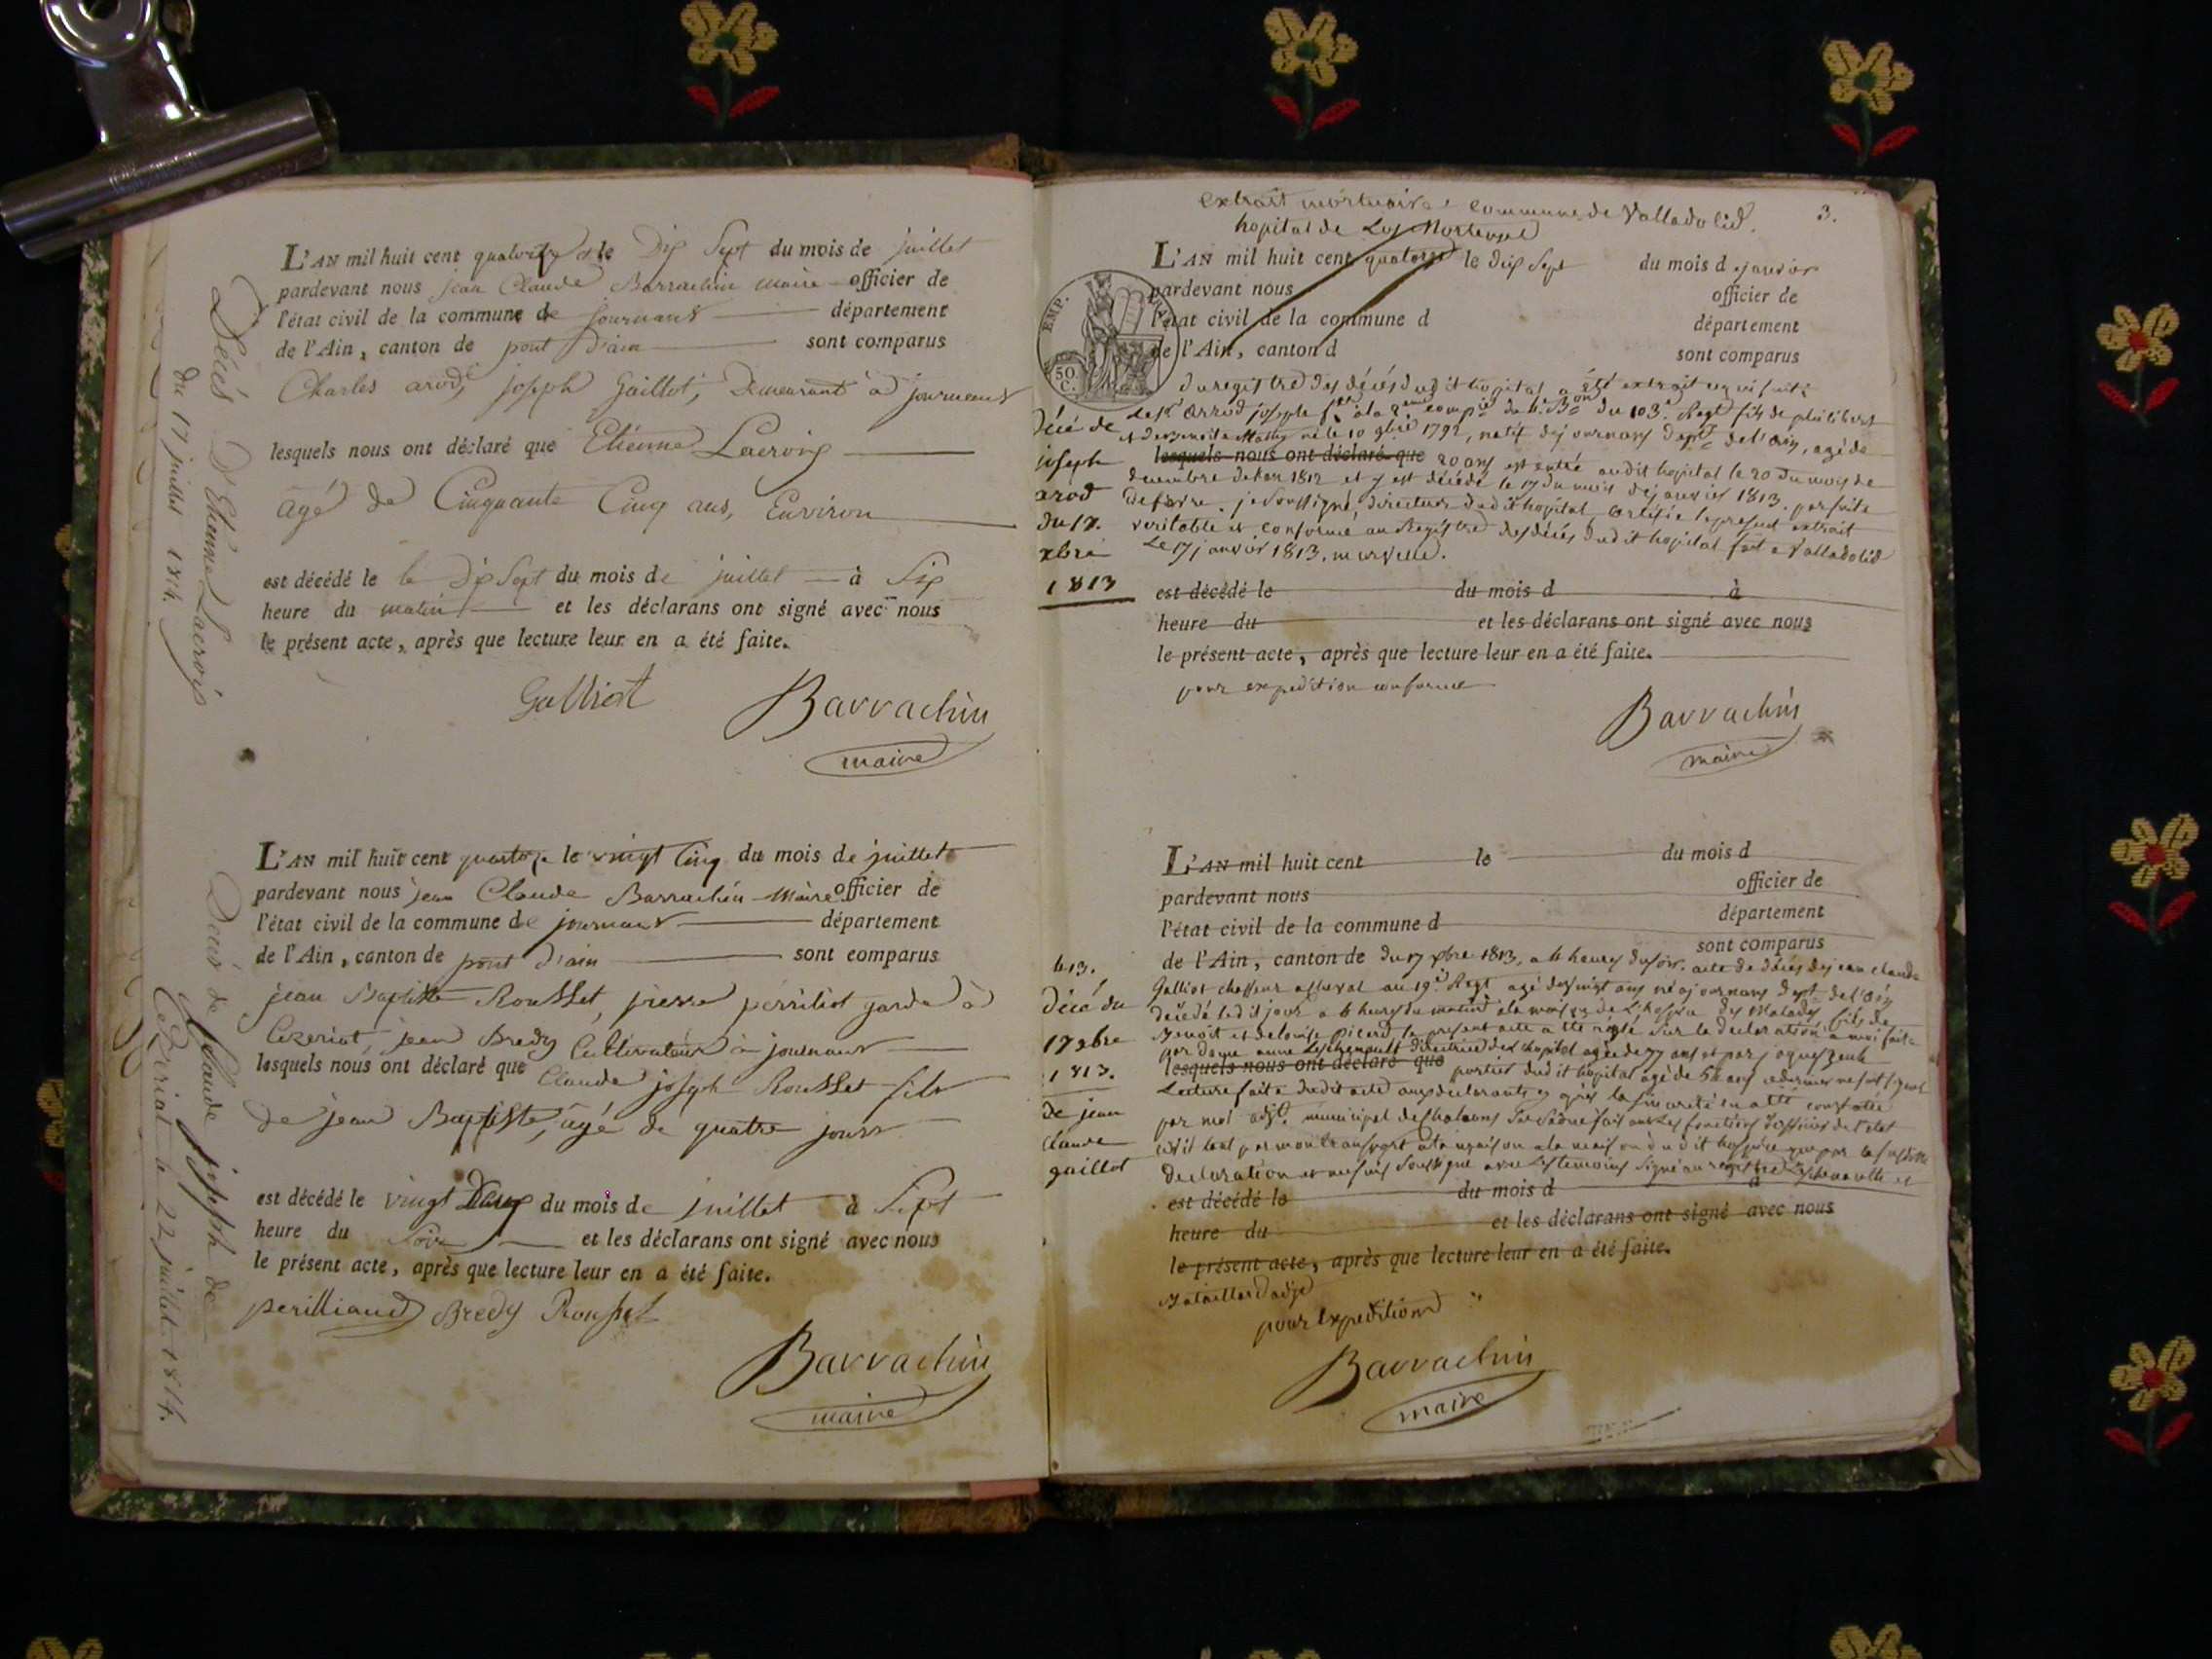 L'AN mil huit cent quatorze le Dix Sept du mois de juillet
pardevant nous jean Claude Barrachin maire officier de
l'état civil de la commune de journans département
de l'Ain, canton de pont D'ain sont comparus
Charles arod, joseph Gaillot, Demeurant à journans
lesquels nous ont déclaré que Etienne Lacroix
âgé de Cinquante Cinq ans, Environ
est décédé le le Dix Sept du mois de juillet à Six
heure du matin et les déclarans ont signé avec nous
le présent acte, après que lecture leur en a été faite.
Galliot Barrachin
maire
Décés D'Etienne Lacroix
du 17 juillet 1814.
L'AN mil huit cent quatorze le vingt Cinq du mois de juillet
pardevant nous jean Claude Barrachin Maire officier de
l'état civil de la commune de journans département
de l'Ain, canton de pont D'ain sont comparus
jean Baptiste Rousset, pierre perriliot garde à
Cezeriat, jean Bredy Cultivateur à journans
lesquels nous ont déclaré que Claude joseph Rousset fils
de jean Baptiste, âgé de quatre jours
est décédé le vingt Deux du mois de juillet à Sept
heure du Soir et les déclarans ont signé avec nous
le présent acte, après que lecture leur en a été faite.
perilliaud Bredy Rousset
Barrachin
maire
Décés de Claude joseph de
Cezeriat le 22 juillet 1814.
extrait mortuaire commune de Valladolid. 3.
hopital de Los
L'AN mil huit cent quatorze le dix Sept du mois d janvier
pardevant nous officier de
l'état civil de la commune d département
de l'Ain, canton d sont comparus
EMP.
50 C.
du registre des décés dudit hopital a été extrait ce qui suit
Le Sr Arrod joseph à la 2 comp du 4 Bon du 103e Regt fils de philibert
et de né le 10 9bre 1792, natif de journans dept de l'ain, agé de
lesquels nous ont déclaré que 20 ans est entré audit hopital le 20 du mois de
decembre de l'an 1812 et y est décédé le 17 du mois de janvier 1813. par suite
de fievre. je Soussigné, directeur dudit hopital certifie le présent extrait
veritable et conforme au Registre des décés dudit hopital fait a Valladolid
Le 17 janvier 1813.
Décé de
joseph
arod
du 17.
xbre
1813
est décédé le du mois d à
heure du et les déclarans ont signé avec nous
le présent acte, après que lecture leur en a été faite.
pour expedition conforme
Barrachin
maire
L'AN mil huit cent le du mois d
pardevant nous officier de
l'état civil de la commune d département
sont comparus
de l'Ain, canton de du 17 xbre 1813, a 4 heures du soir. acte de décés de jean claude
Galliot chasseur a cheval au 19e Regt agé de vingt ans né a journans dept de l'ain
décédé ledit jour a 6 heures du matin a la maison de L'hospice des Malades fils de
Benoit et de louise Picard le present acte a été rédigé Sur la declaration a moi faite
par dame anne directrice de L'hopital agée de 77 ans et par jaques
lesquels nous ont déclaré que portier dudit hopital agé de 54 ans
Lecture faite dudit acte aux declarants
par moi adjt. municipal de Chalons Sur Saône faisant Les fonctions d'officier de l'etat
civil
declaration et
b13.
Décé du
17 xbre
1813.
de jean
claude
gaillot
est décédé le du mois d à
heure du et les déclarans ont signé avec nous
le présent acte, après que lecture leur en a été faite.
pour Expedition
Barrachin
maire